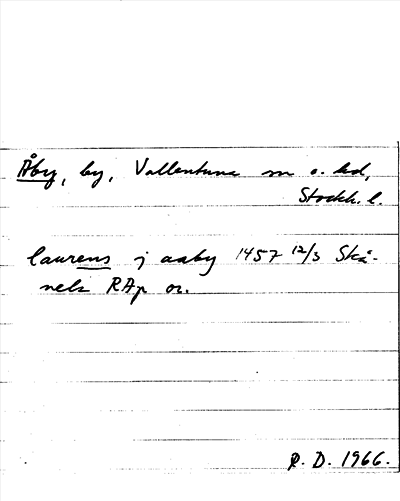 Åby, by, Vallentuna sn o. hd,
Stockh. l.
laurens j aaby 1457 12/3 Skå-
nela RAp or.
R. D. 1966.